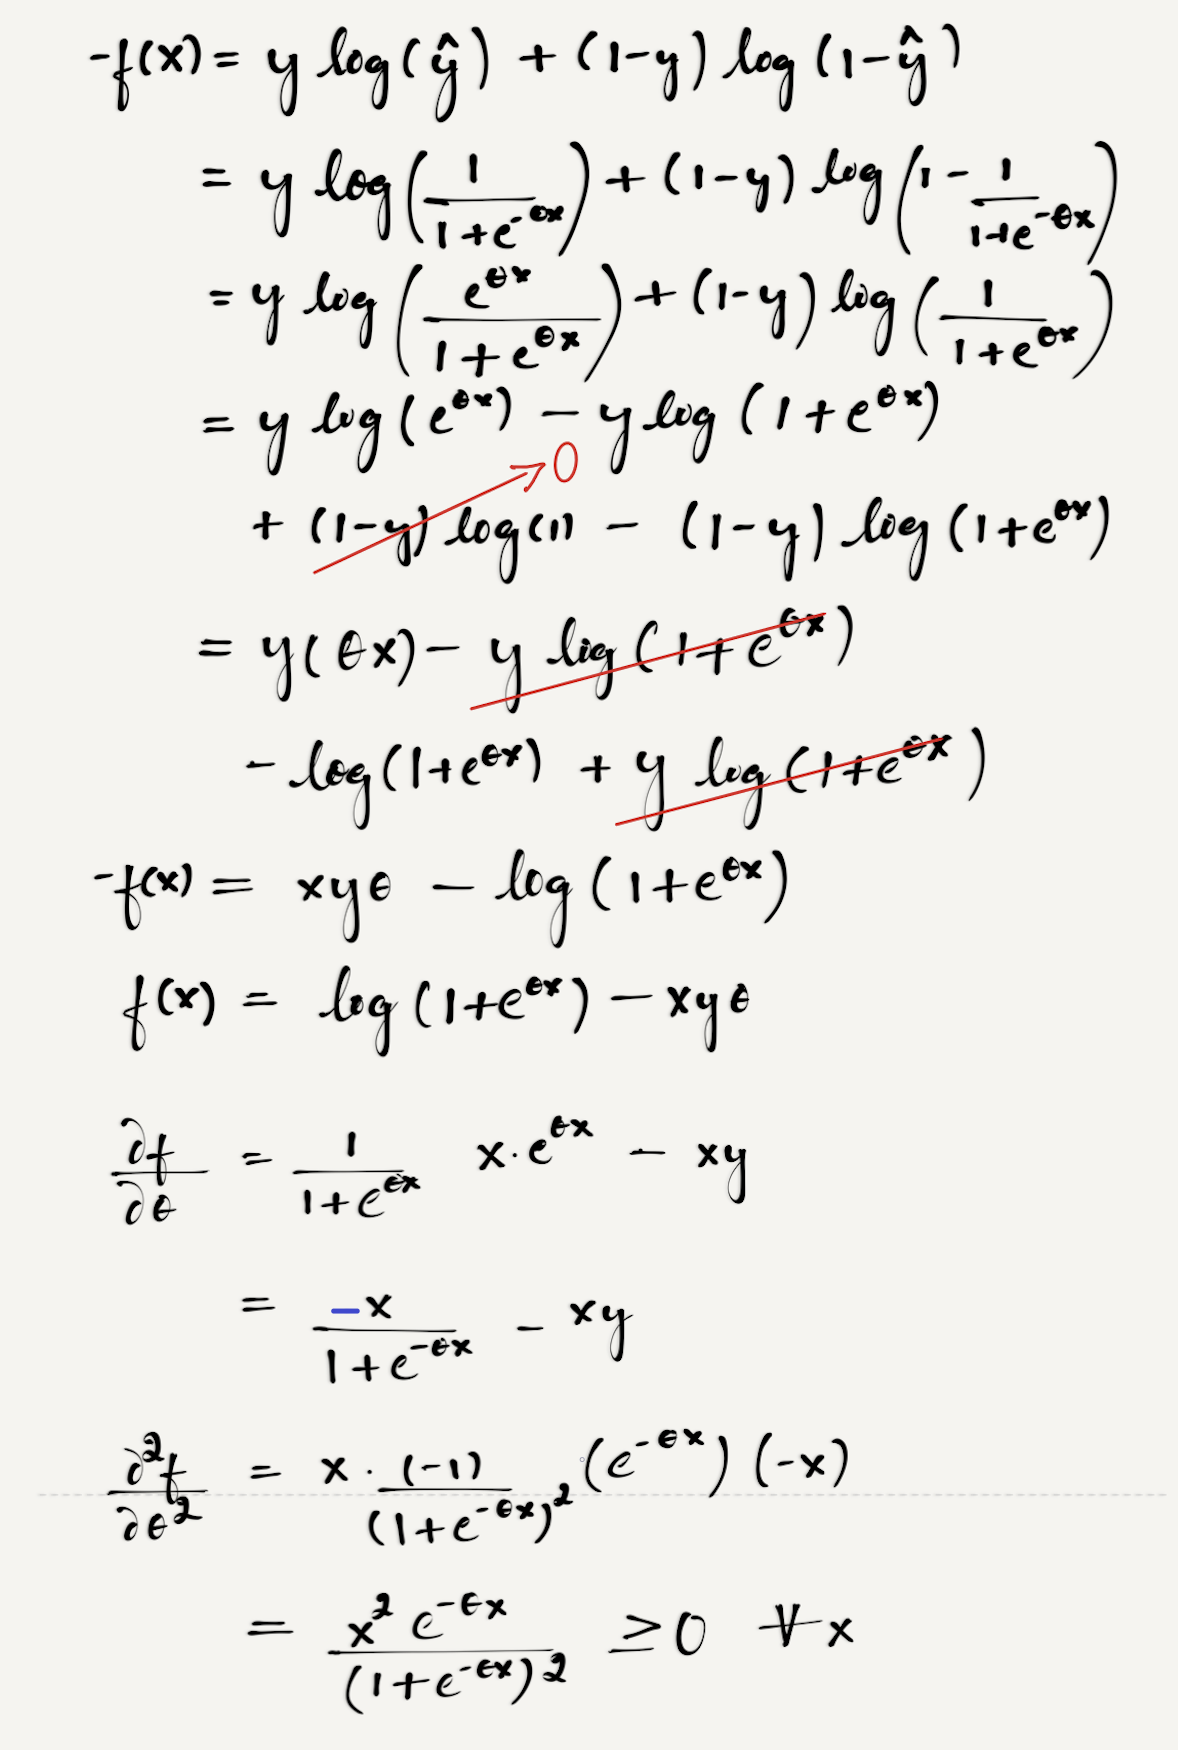 -f(x) = y log(ŷ) + (1-y) log(1-ŷ)
= y log(1/(1+e^{-θx})) + (1-y) log(1 - 1/(1+e^{-θx}))
= y log(e^{θx}/(1+e^{θx})) + (1-y) log(1/(1+e^{θx}))
= y log(e^{θx}) - y log(1+e^{θx})
+ (1-y) log(1) → 0 - (1-y) log(1+e^{θx})
= y(θx) - y log(1+e^{θx})
- log(1+e^{θx}) + y log(1+e^{θx})
-f(x) = xyθ - log(1+e^{θx})
f(x) = log(1+e^{θx}) - xyθ
∂f/∂θ = 1/(1+e^{θx}) x·e^{θx} - xy
= -x/(1+e^{-θx}) - xy
∂²f/∂θ² = x · (-1)/(1+e^{-θx})² (e^{-θx}) (-x)
= x² e^{-θx}/(1+e^{-θx})² ≥ 0 ∀x